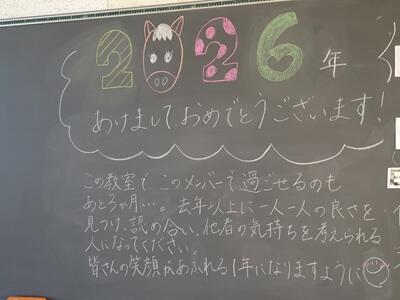 2026年
あけましておめでとうございます!
この教室で このメンバーで過ごせるのも
あと3か月…。去年以上に一人一人の良さを
見つけ、認め合い、他者の気持ちを考えられる
人になってください。
皆さんの笑顔があふれる1年になりますように